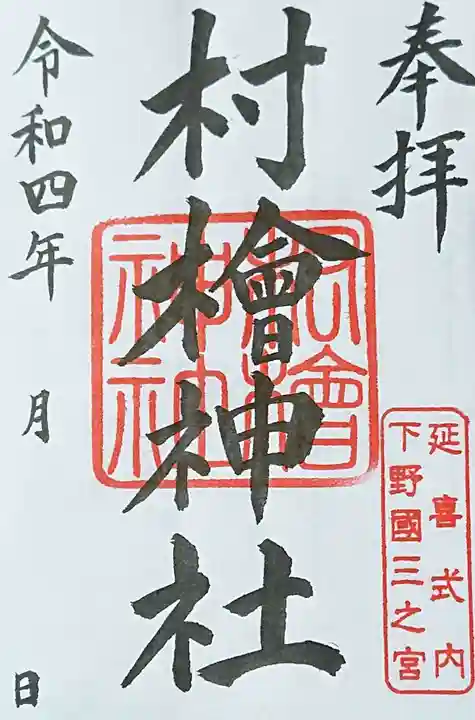 奉拝
延喜式内
下野國三之宮
村檜神社
村檜神社
令和四年
月
日